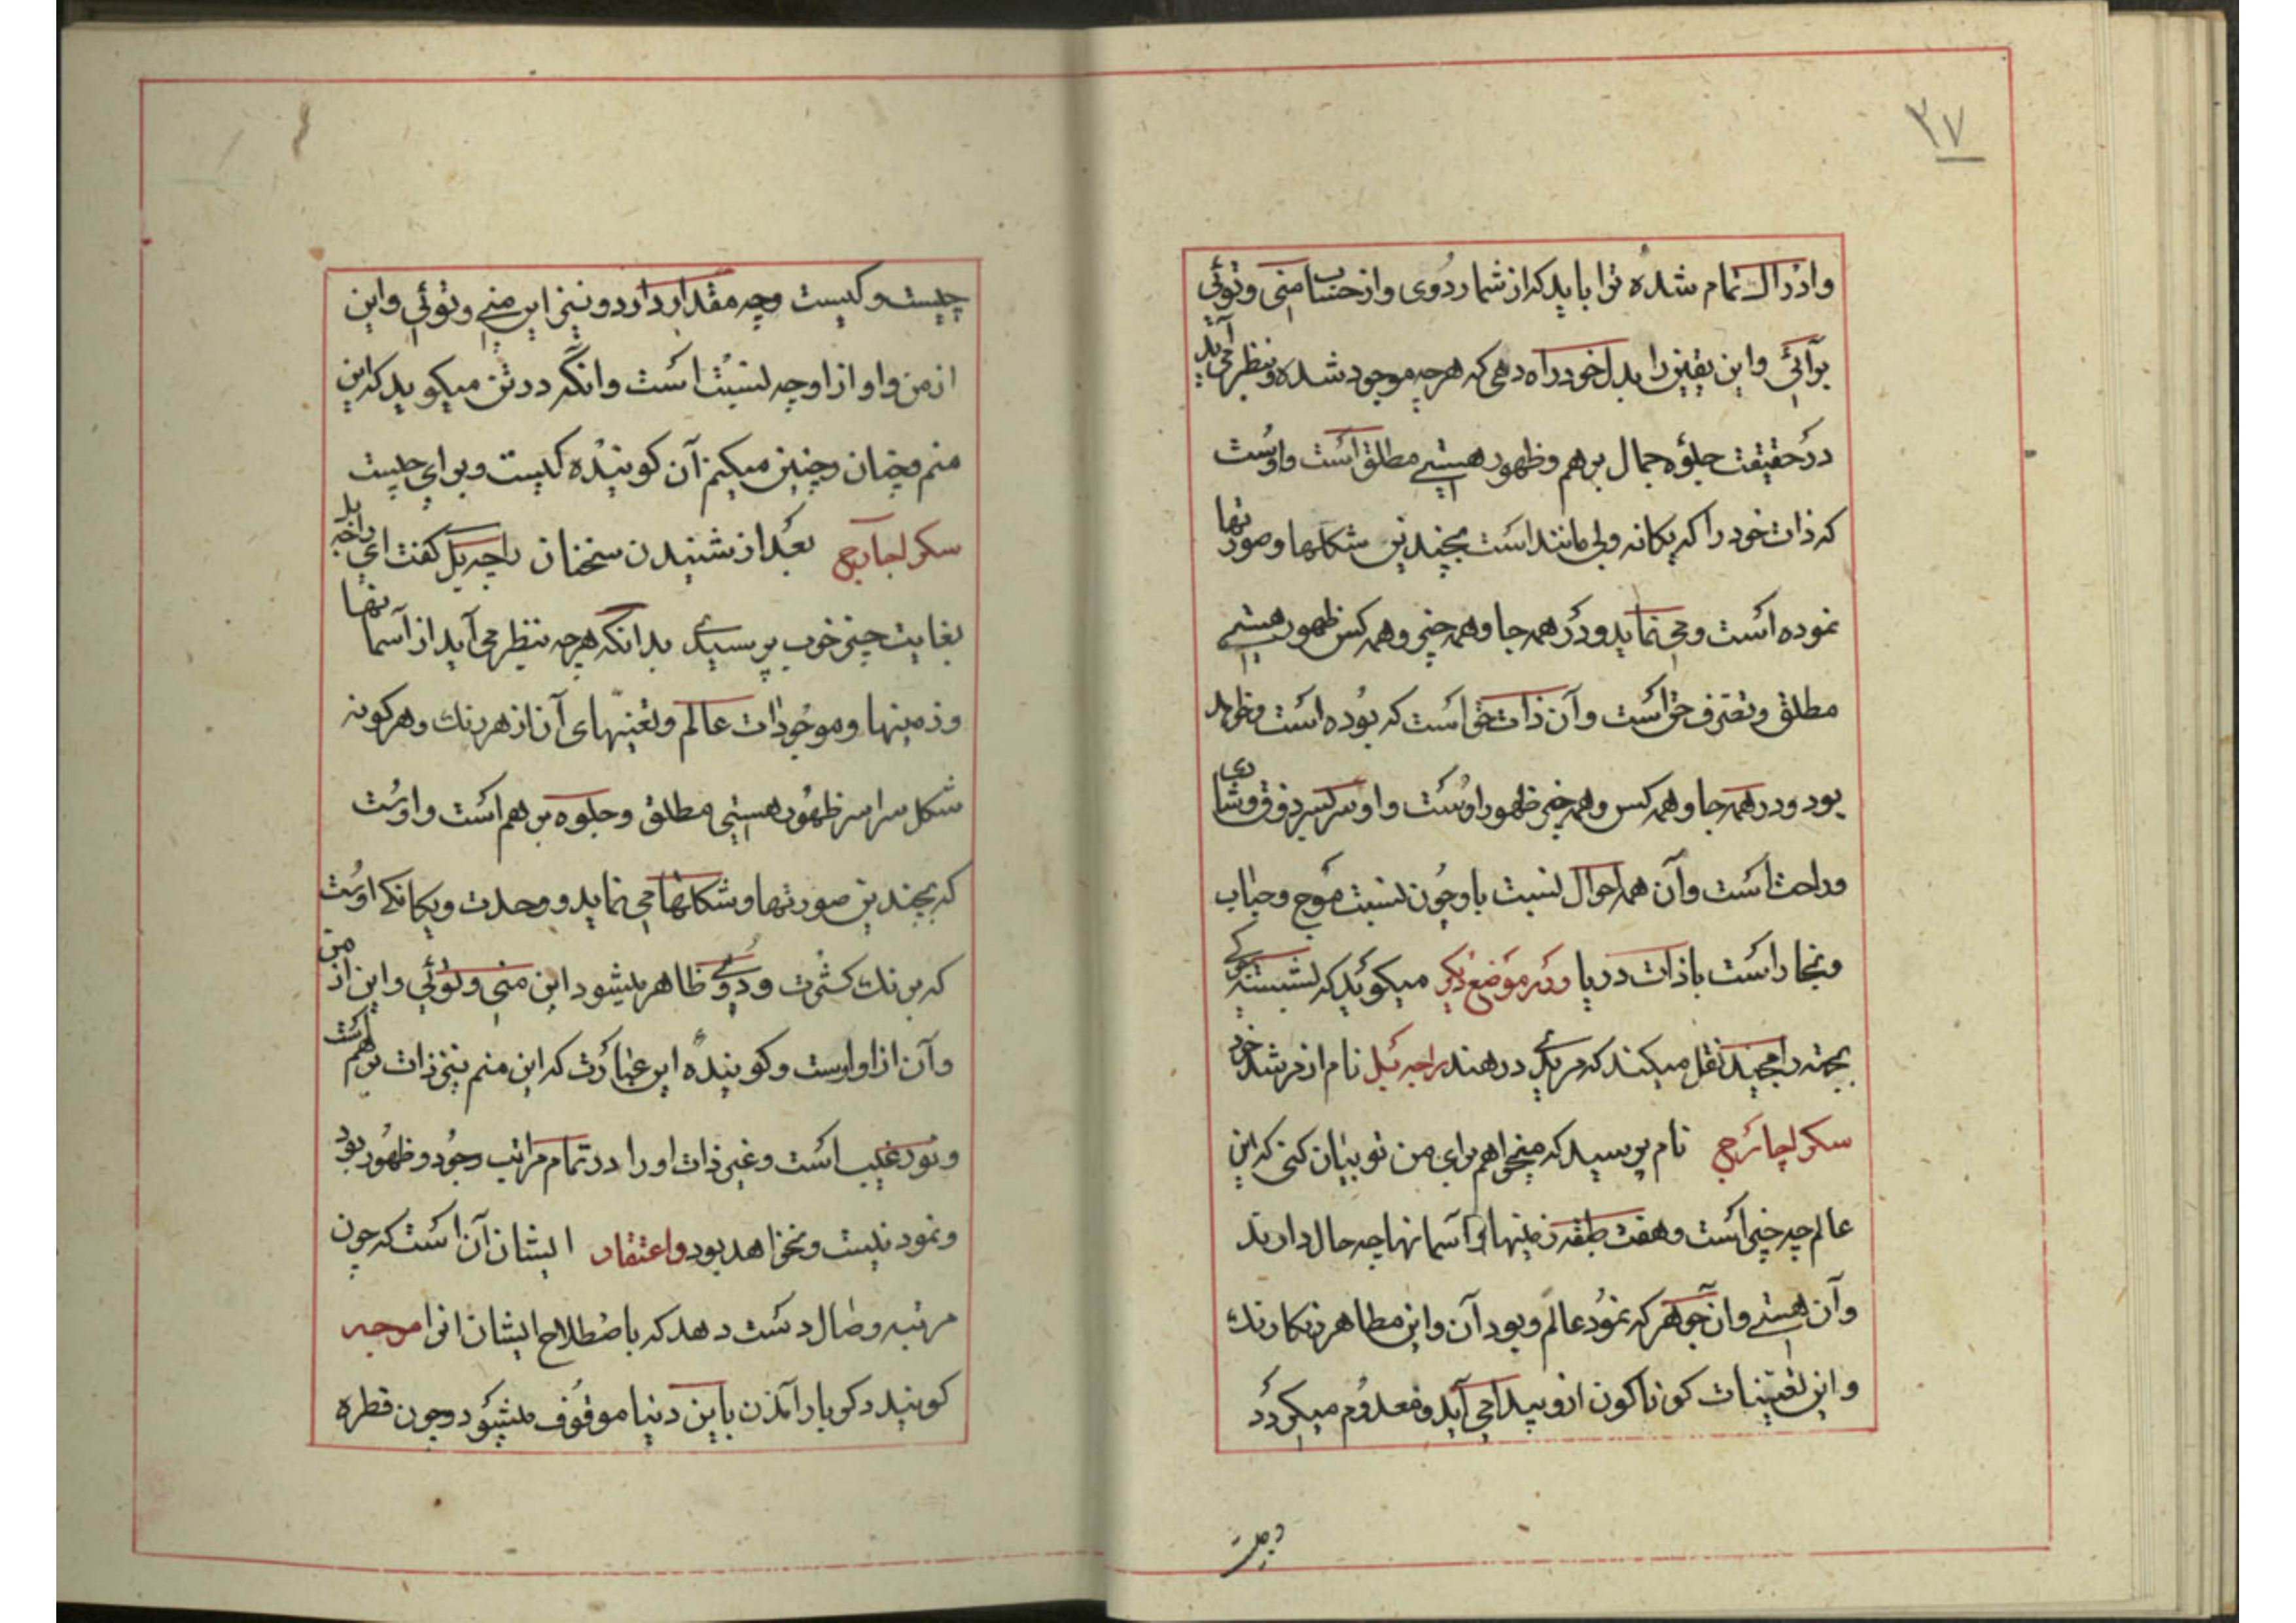 ۳۷
وادراك تمام شده ترا باید که از شما ردوی واز حساب منی وتوئی
برآئی واین یقین را بدل خود راه دهی که هرچه موجود شده ونظر می آید
درحقیقت جلوه جمال برهم وظهور هستی مطلق است واوست
که ذات خود را که یکانه وبی مانند است بچندین شکلها وصورتها
نموده است ومی نماید ودر همه جا وهمه چیز وهمه کس ظهور هستی
مطلق وتصرف حق است وآن ذات حق است که بوده است وخواهد
بود ودر همه جا وهمه کس وهمه چیز ظهور اوست واو سراسر ذوق وشادی
وراحت است وآن همه احوال نسبت باو چون نسبت موج وحباب
وبخار است باذات دریا ودر موضع دیکر میکوید که لشبسته که
بجهته رامچند نقل میکند که مریدی در هند راجه بل نام از مرشد خود
سکر اچارج نام پرسید که میخواهم برای من تو بیان کنی که این
عالم چه چیز است وهفت طبقه زمینها وآسمانها چه حال دارند
وآن هستی وآن جوهر که نمود عالم وبود آن واین مظاهر رنکارنك
واین تعینات کوناکون ازو پیدا می آید ومعدوم میکردد
چیست
چیست وکیست وچه مقدار دارد ونیز این منی وتوئی واین
از من واو از او چه نسبت است وانکه در تن میکوید که این
منم وچنان وچنین میکنم آن کوینده کیست وبرای چیست
سکر اچارج بعد از شنیدن سخنان راجه بل کفت ای راجه بل
بغایت چیز خوب پرسیدی بدانکه هرچه بنظر می آید از آسمانها
وزمینها وموجودات عالم وتعینهای آن از هر رنك وهر کونه
شکل سراسر ظهور هستی مطلق وجلوه برهم است واوست
که بچندین صورتها وشکلها می نماید ووحدت ویکانکی اوست
که برنك کثرت ودوی ظاهر میشود این منی وتوئی واین از من
وآن از او اوست وکوینده این عبارت که این منم نیز ذات برهم است
ونور غیب است وغیر ذات او را در تمام مراتب وجود وظهور بود
ونمود نیست ونخواهد بود واعتقاد ایشان آن است که چون
مرتبه وصال دست دهد که باصطلاح ایشان انرا موجه
کویند دکر بار آمدن باین دنیا موقوف میشود وچون قطره